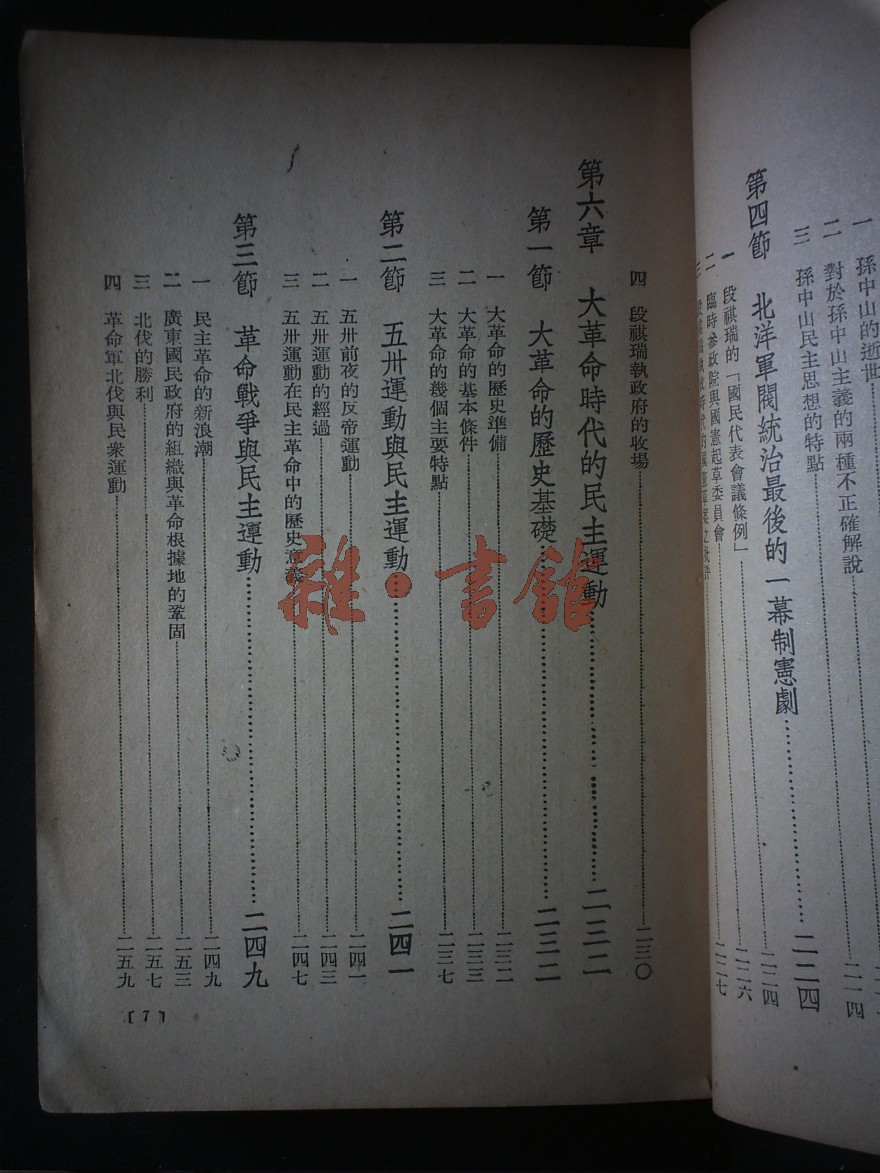 一 孫中山的逝世
二 對於孫中山主義的兩種不正確解說……二一四
三 孫中山民主思想的特點
第四節 北洋軍閥統治最後的一幕制憲劇……二二四
一 段祺瑞的「國民代表會議條例」……二二四
二 臨時參政院與國憲起草委員會……二二六
三 ……二二七
四 段祺瑞執政府的收場……二三〇
第六章 大革命時代的民主運動……二三二
第一節 大革命的歷史基礎……二三二
一 大革命的歷史準備……二三二
二 大革命的基本條件……二三三
三 大革命的幾個主要特點……二三七
第二節 五卅運動與民主運動……二四一
一 五卅前夜的反帝運動……二四一
二 五卅運動的經過……二四三
三 五卅運動在民主革命中的歷史意義……二四七
第三節 革命戰爭與民主運動……二四九
一 民主革命的新浪潮……二四九
二 廣東國民政府的組織與革命根據地的鞏固……二五三
三 北伐的勝利……二五七
四 革命軍北伐與民衆運動……二五九
〔7〕
雜·書館